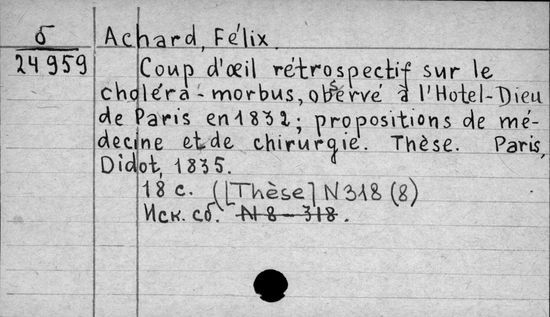 б
24959
Achard, Félix.
Coup d'œil rétrospectif sur le
choléra-morbus, observé à l'Hotel-Dieu
de Paris en 1832; propositions de mé-
decine et de chirurgie. Thèse. Paris,
Didot, 1835.
18 с. ([Thèse] N318 (8)
Иск. сб. N 8-318.